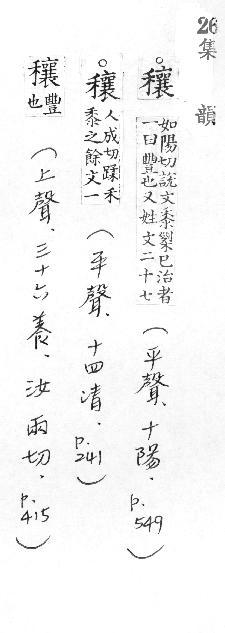 26集韻
穰 如陽切說文黍䅀已治者
一曰豐也又姓文二十七
(平聲、十陽、p.549)
穰 人成切蹂禾
黍之餘文一
(平聲、十四清、p.241)
穰 豐
也
(上聲、三十六養、汝兩切、p.415)